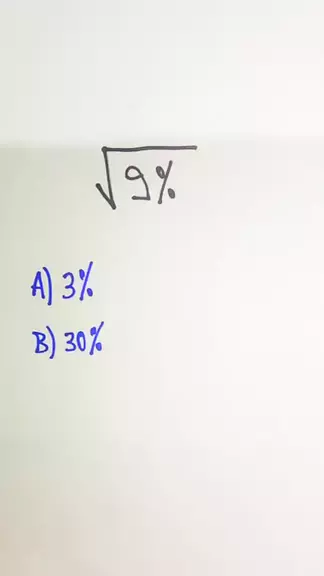 √9%
A) 3%
B) 30%